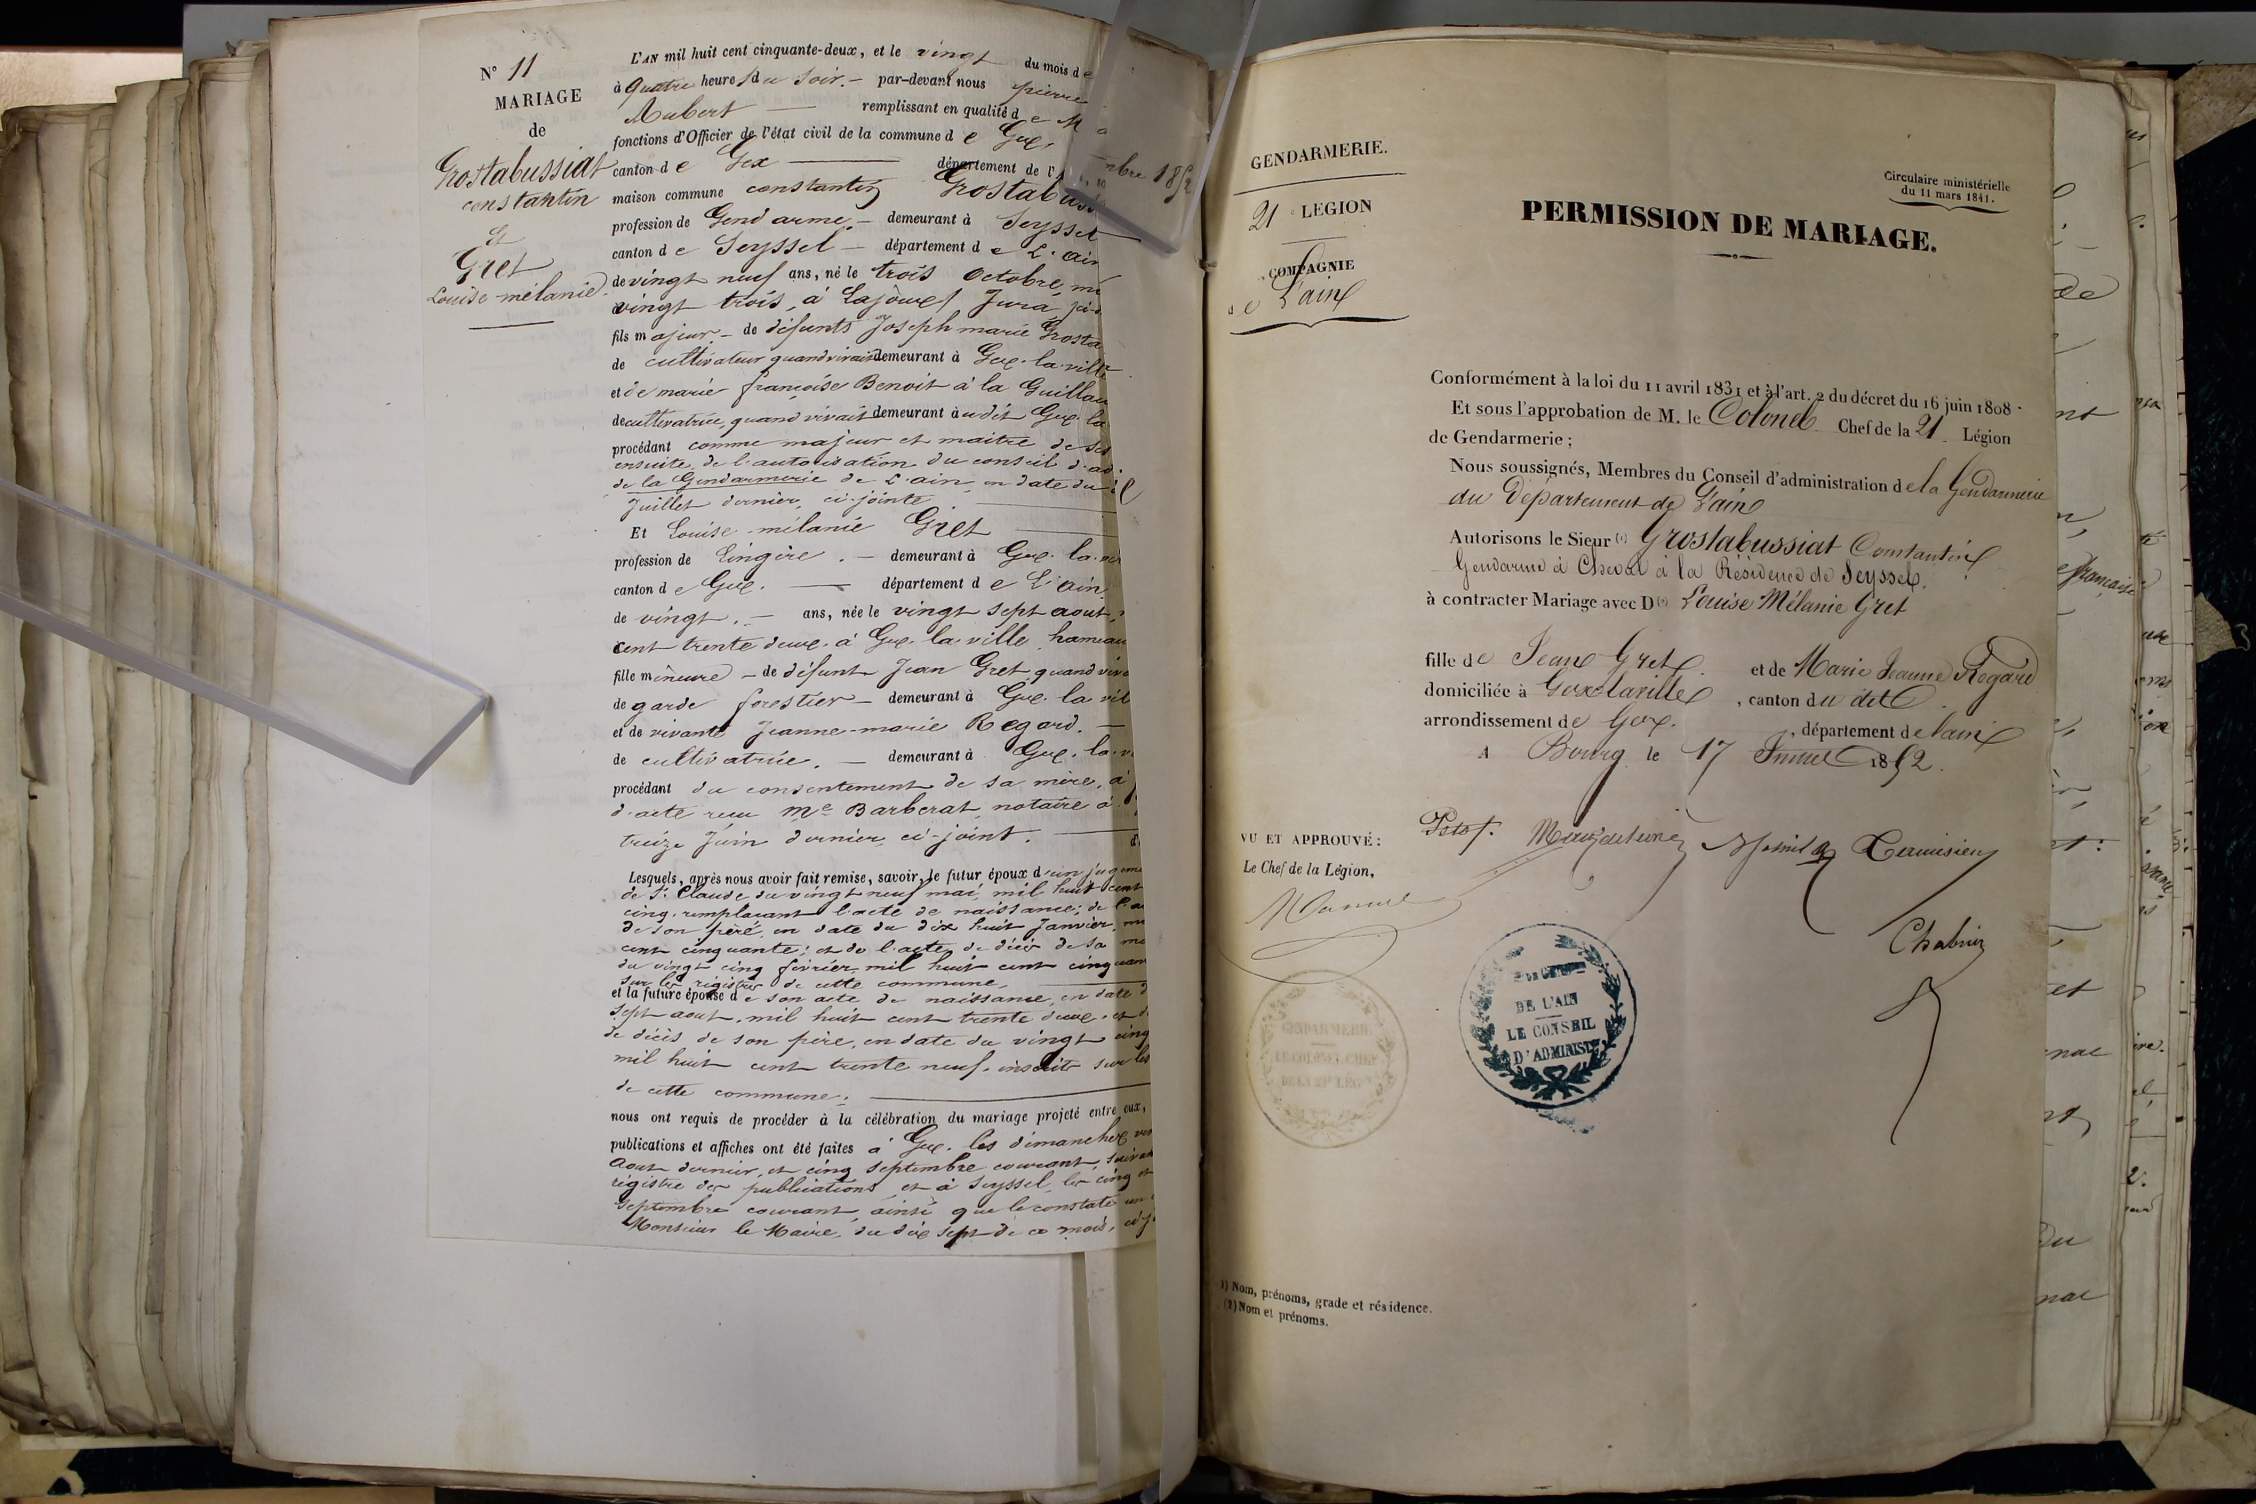 N° 11
MARIAGE
de
Grostabussiat
constantin
et
Gret
Louise-mélanie.
L'AN mil huit cent cinquante-deux, et le vingt du mois de
à quatre heures du soir. — par-devant nous pierre
Aubert — remplissant en qualité de M
fonctions d'Officier de l'état civil de la commune de Gex,
canton de Gex — département de l'
mbre 1852
maison commune constantin Grostabuss
profession de Gendarme, — demeurant à Seyssel
canton de Seyssel — département de L'ain
de vingt neuf ans, né le trois Octobre, mi
vingt trois, à Lajoux, Jura,
fils majeur — de défunts Joseph marie Grosta
de cultivateur quand vivait demeurant à Gex-la-ville
et de marie françoise Benoit à la Guillau
de cultivatrice, quand vivait demeurant au dit Gex-la
procédant comme majeur et maitre de ses
ensuite de l'autorisation du conseil d'ad
de la Gendarmerie de L'ain, en date du
Juillet dernier, ci-jointe
Et Louise-mélanie Gret
profession de Lingère. — demeurant à Gex-la-
canton de Gex. — département de L'ain
de vingt. — ans, née le vingt sept aout,
cent trente deux, à Gex-la ville, hameau
fille mineure — de défunt Jean Gret, quand viva
de garde forestier — demeurant à Gex-la vil
et de vivante Jeanne-marie Regard. —
de cultivatrice. — demeurant à Gex-la-v
procédant du consentement de sa mère, à
d'acte reçu Me Barberat, notaire à
treize Juin dernier, ci-joint.
Lesquels, après nous avoir fait remise, savoir, le futur époux d'un jugeme
de St Claude du vingt neuf mai, mil huit cent
cinq, remplaçant l'acte de naissance; de l'a
de son père, en date du dix huit Janvier, m
cent cinquante; et de l'acte de décès de sa me
du vingt cinq février mil huit cent cinquan
sur les registres de cette commune,
et la future épouse de son acte de naissance, en date
sept aout, mil huit cent trente deux, et
de décès de son père, en date du vingt cinq
mil huit cent trente neuf, inscrits sur les
de cette commune;
nous ont requis de procéder à la célébration du mariage projeté entre eux,
publications et affiches ont été faites à Gex, les dimanches vin
aout dernier, et cinq septembre courant, suivan
registre des publications, et à Seyssel, les cinq et
septembre courant, ainsi que le constate un
Monsieur le Maire, du dix sept de ce mois, ci-j
GENDARMERIE.
21e LEGION
COMPAGNIE
de L'ain
Circulaire ministérielle
du 11 mars 1841.
PERMISSION DE MARIAGE.
Conformément à la loi du 11 avril 1831 et à l'art. 2 du décret du 16 juin 1808.
Et sous l'approbation de M. le Colonel Chef de la 21 Légion
de Gendarmerie;
Nous soussignés, Membres du Conseil d'administration de la Gendarmerie
du Département de L'ain
Autorisons le Sieur (1) Grostabussiat Constantin
Gendarme à Cheval à la Résidence de Seyssel.
à contracter Mariage avec D (2) Louise Mélanie Gret
fille de Jean Gret et de Marie Jeanne Regard
domiciliée à Gex la ville, canton du dit
arrondissement de Gex. département de l'ain
A Bourg le 17 Juillet 1852.
VU ET APPROUVÉ:
Le Chef de la Légion,
Chabrier
GENDARMERIE
LE COLONEL CHEF
DE LA 21e LÉGION
DE L'AIN
LE CONSEIL
D'ADMINIST
(1) Nom, prénoms, grade et résidence.
(2) Nom et prénoms.